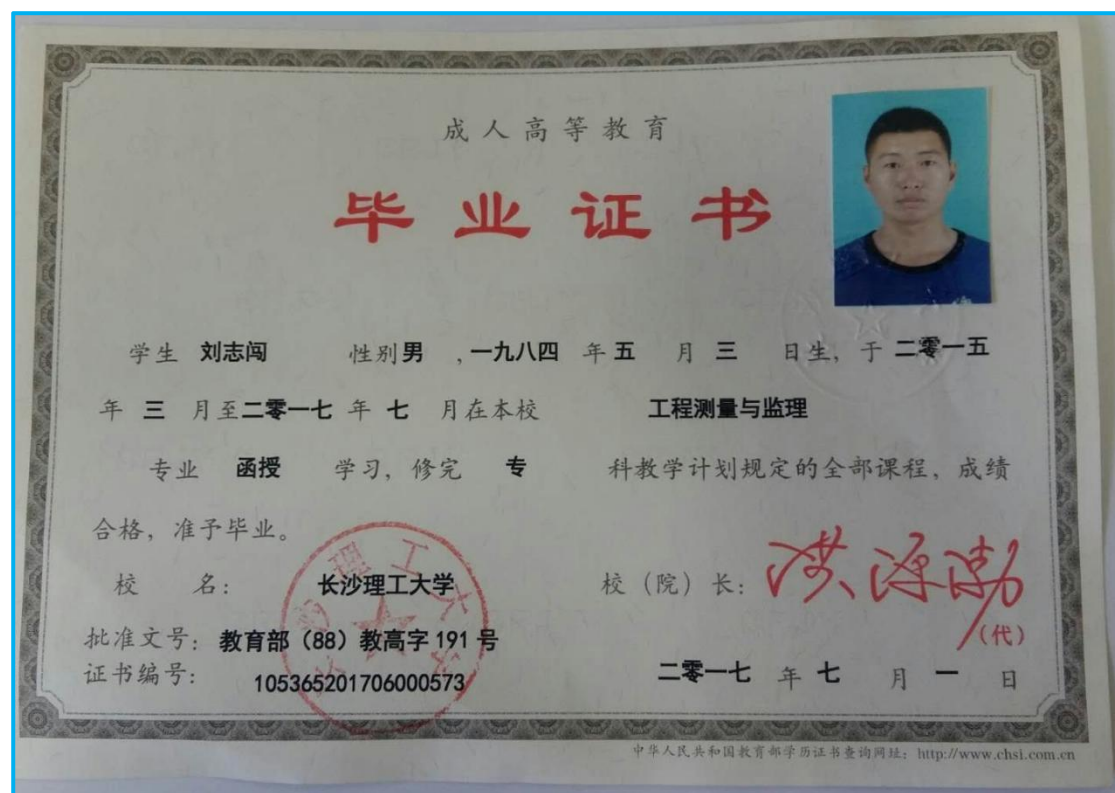 成人高等教育
毕业证书
学生 刘志闯 性别 男 ，一九八四 年 五 月 三 日生，于 二零一五
年 三 月至 二零一七 年 七 月在本校 工程测量与监理
专业 函授 学习，修完 专 科教学计划规定的全部课程，成绩
合格，准予毕业。
校 名： 长沙理工大学 校（院）长： 洪源渤
（代）
批准文号： 教育部（88）教高字 191 号
证书编号： 105365201706000573 二零一七 年 七 月 一 日
长沙理工大学
中华人民共和国教育部学历证书查询网址：http://www.chsi.com.cn